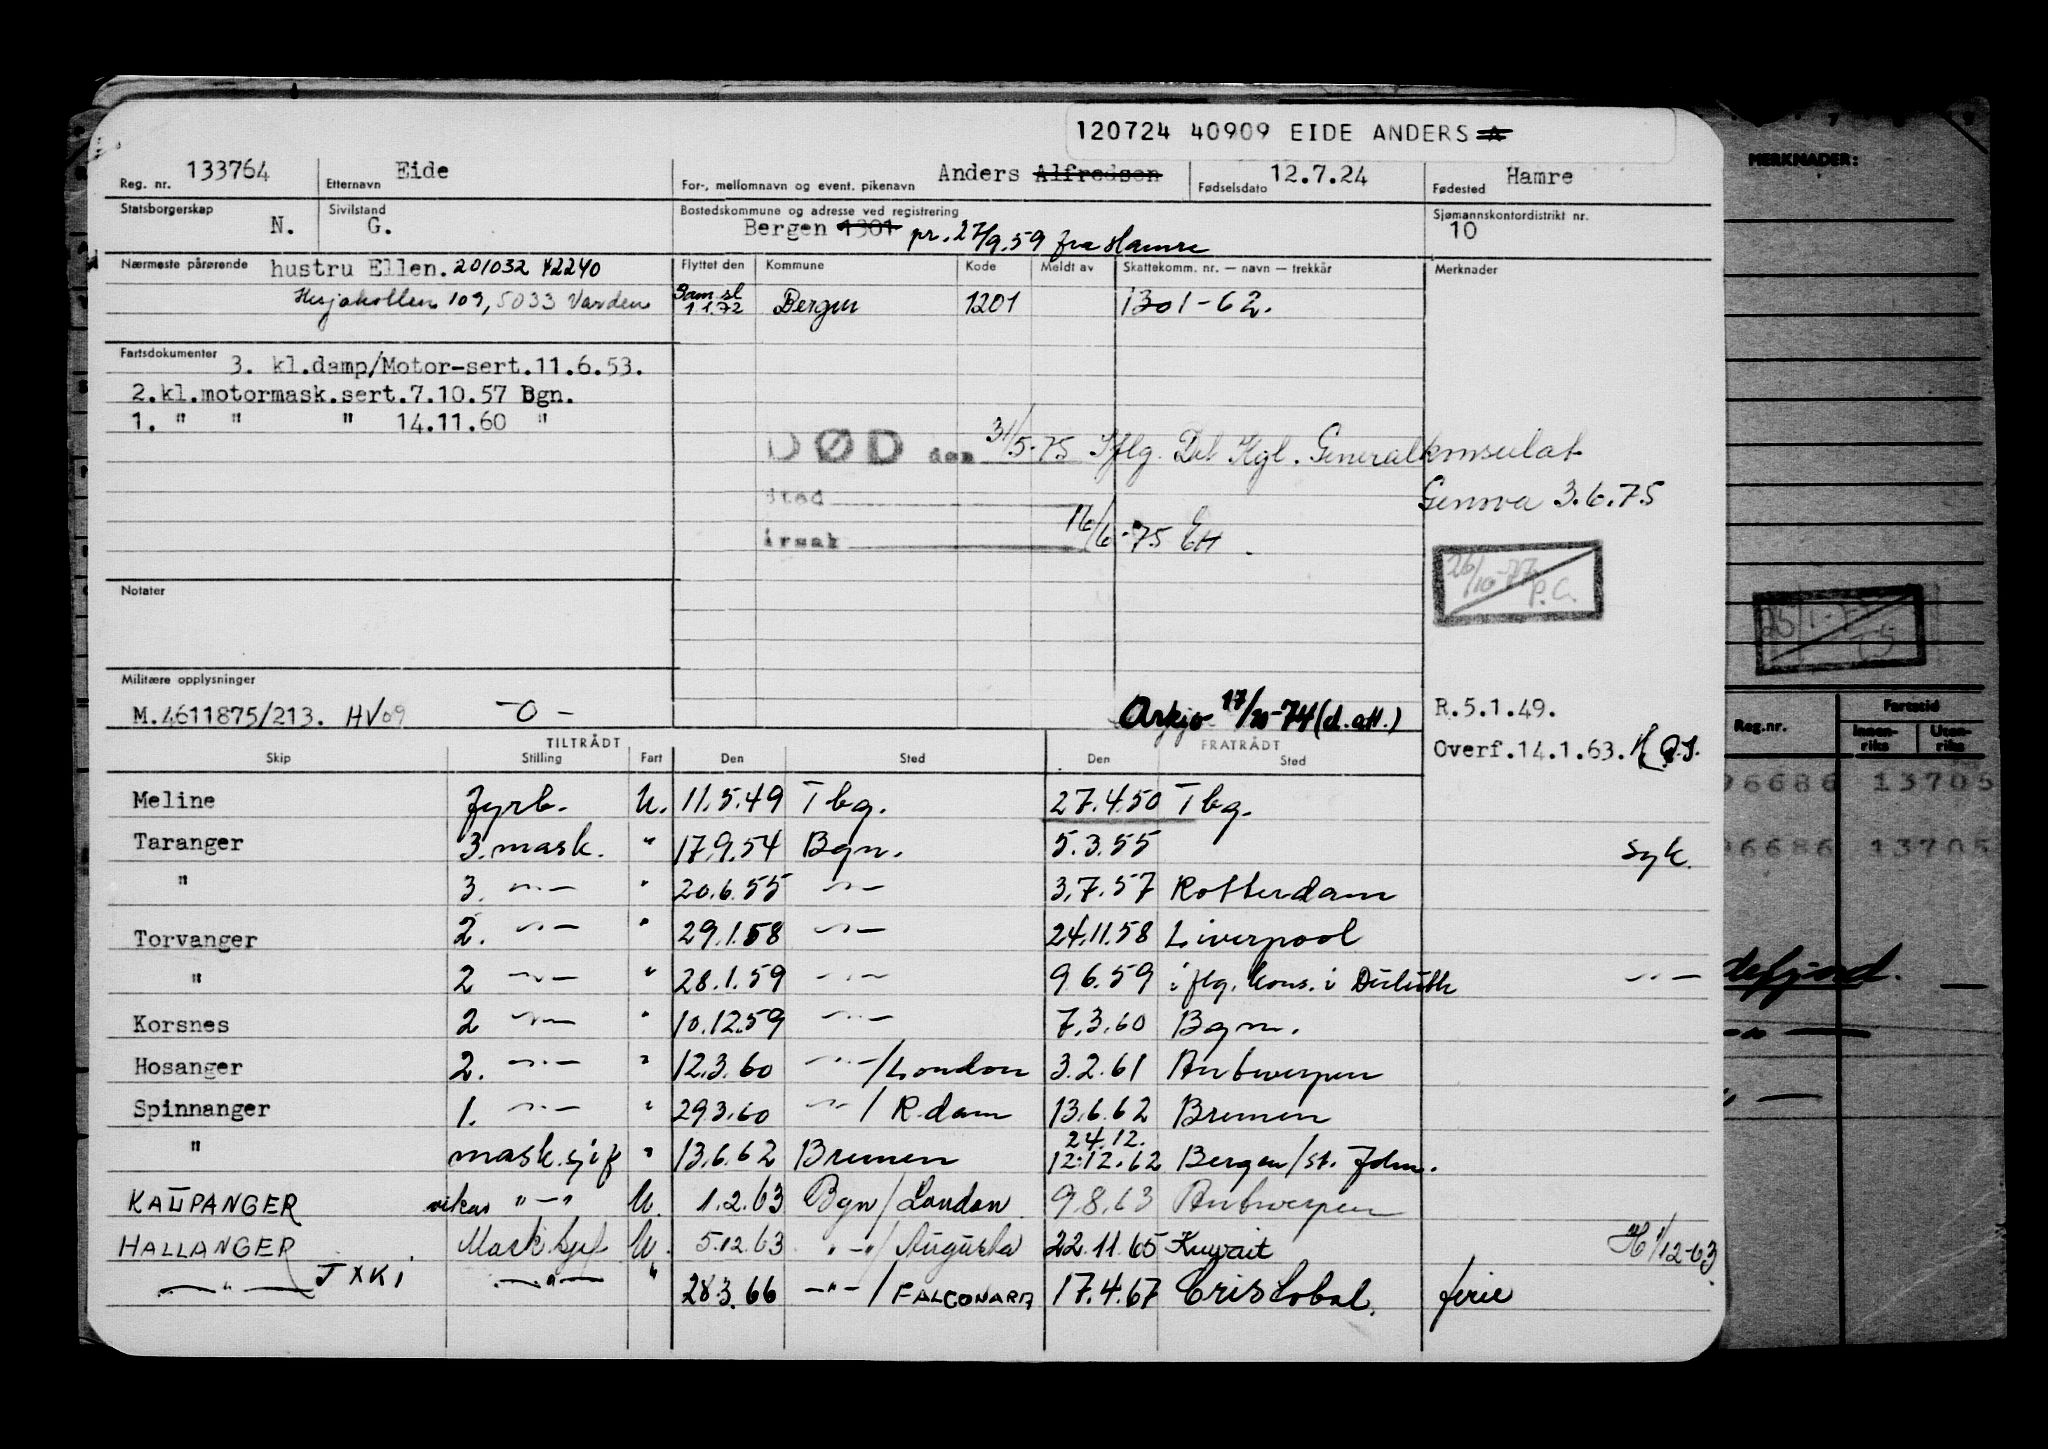 120724 40909 EIDE ANDERS A
Reg. nr. 133764 Etternavn Eide For-, mellomnavn og event. pikenavn Anders Alfredsen Fødselsdato 12.7.24 Fødested Hamre
Statsborgerskap N. Sivilstand G. Bostedskommune og adresse ved registrering Bergen 1301 pr. 27/9.59 fra Hamre Sjømannskontordistrikt nr. 10
Nærmeste pårørende hustru Ellen. 201032 42240 Flyttet den Kommune Kode Meldt av Skattekomm. nr. — navn — trekkår Merknader
109, 5033 Varden Sam.sl 1.1.72 Bergen 1201 1301-62.
Fartsdokumenter 3. kl.damp/Motor-sert.11.6.53.
2.kl.motormask.sert.7.10.57 Bgn.
1. " " " 14.11.60 "
DØD den 31/5-75 Iflg. Det Kgl. Generalkonsulat
Genova 3.6.75
sted
årsak 16/6-75 EH.
26/10-77 P.G.
Notater
Militære opplysninger
M.4611875/213. HV09 -0- Arkiv 17/10-74 (d.att.) R.5.1.49.
Overf.14.1.63.
TILTRÅDT FRATRÅDT
Skip Stilling Fart Den Sted Den Sted
Meline fyrb. U. 11.5.49 Tbg. 27.4.50 Tbg.
Taranger 3. mask. " 17.9.54 Bgn. 5.3.55 syk.
" 3. —"— " 20.6.55 —"— 3.7.57 Rotterdam
Torvanger 2. —"— " 29.1.58 —"— 24.11.58 Liverpool
" 2 —"— " 28.1.59 —"— 9.6.59 iflg. kons. i Duluth —"—
Korsnes 2 —"— " 10.12.59 —"— 7.3.60 Bgn.
Hosanger 2. —"— " 12.3.60 —"—/London 3.2.61 Antwerpen
Spinnanger 1. —"— " 29.3.60 —"—/R.dam 13.6.62 Bremen
" mask.sjef " 13.6.62 Bremen 24.12. 12.12.62 Bergen/St. John.
KAUPANGER vikar "—" U. 1.2.63 Bgn/London 9.8.63 Antwerpen
HALLANGER Mask.sjef U. 5.12.63 "—"/Augusta 22.11.65 Kuwait H 1/12-63
—"— JXKI —"— " 28.3.66 —"—/FALCONARA 17.4.67 Cristobal. ferie
MERKNADER:
Reg.nr. Fartstid
Innen-riks Uten-riks
96686 13705
96686 13705
defjord. —